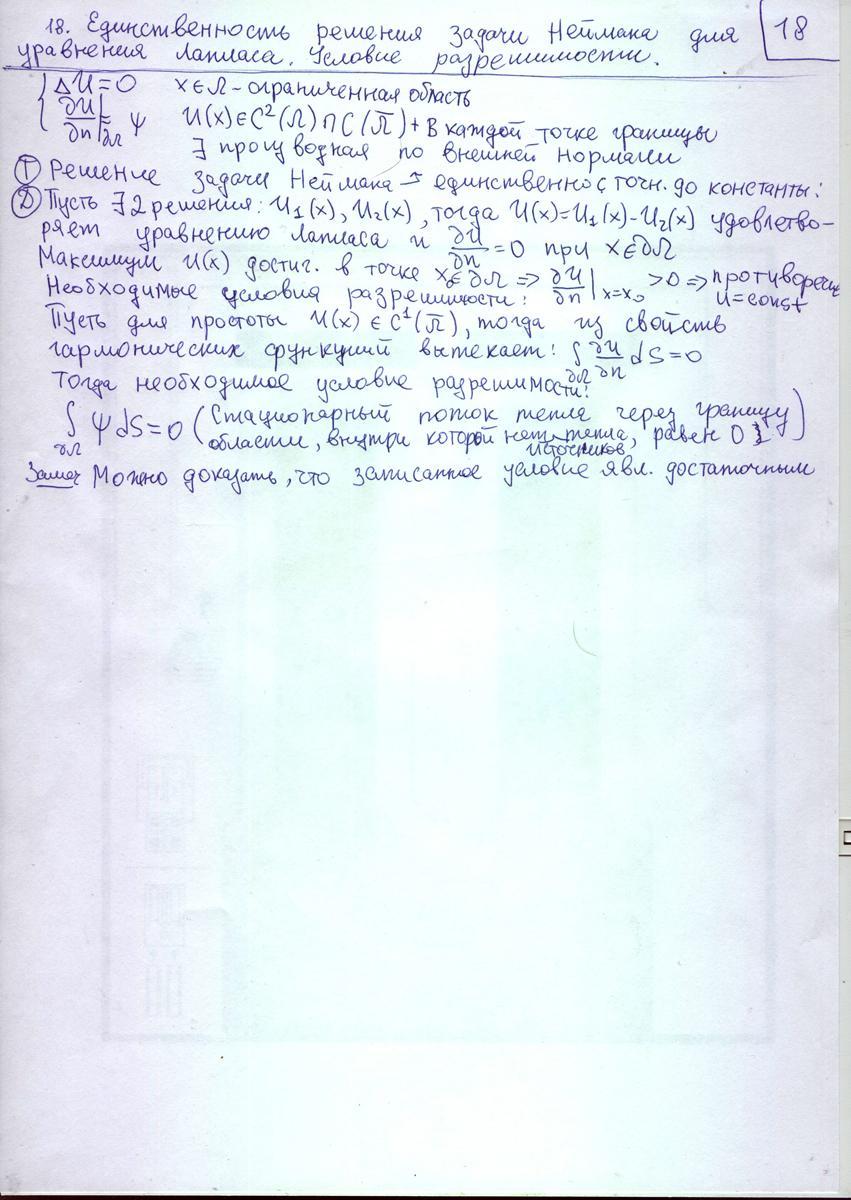 18. Единственность решения задачи Неймана для
18
уравнения Лапласа. Условие разрешимости.
{ ΔU=0 x∈Ω - ограниченная область
∂U/∂n|∂Ω = ψ U(x)∈C²(Ω)∩C(Ω̅) + в каждой точке границы
∃ производная по внешней нормали
Ⓣ Решение задачи Неймана → единственно с точн. до константы:
Ⓓ Пусть ∃ 2 решения: U₁(x), U₂(x), тогда U(x)=U₁(x)-U₂(x) удовлетво-
ряет уравнению Лапласа и ∂U/∂n = 0 при x∈∂Ω
Максимум U(x) достиг. в точке x∈∂Ω => ∂U/∂n|x=x₀ >0 => противореч
U=const
Необходимые условия разрешимости:
Пусть для простоты U(x)∈C¹(Ω̅), тогда из свойств
гармонических функций вытекает: ∫∂Ω ∂U/∂n dS=0
Тогда необходимое условие разрешимости:
∫∂Ω ψ dS=0 (Стационарный поток тепла через границу
области, внутри которой нет источников тепла, равен 0)
Замеч Можно доказать, что записанное условие явл. достаточным